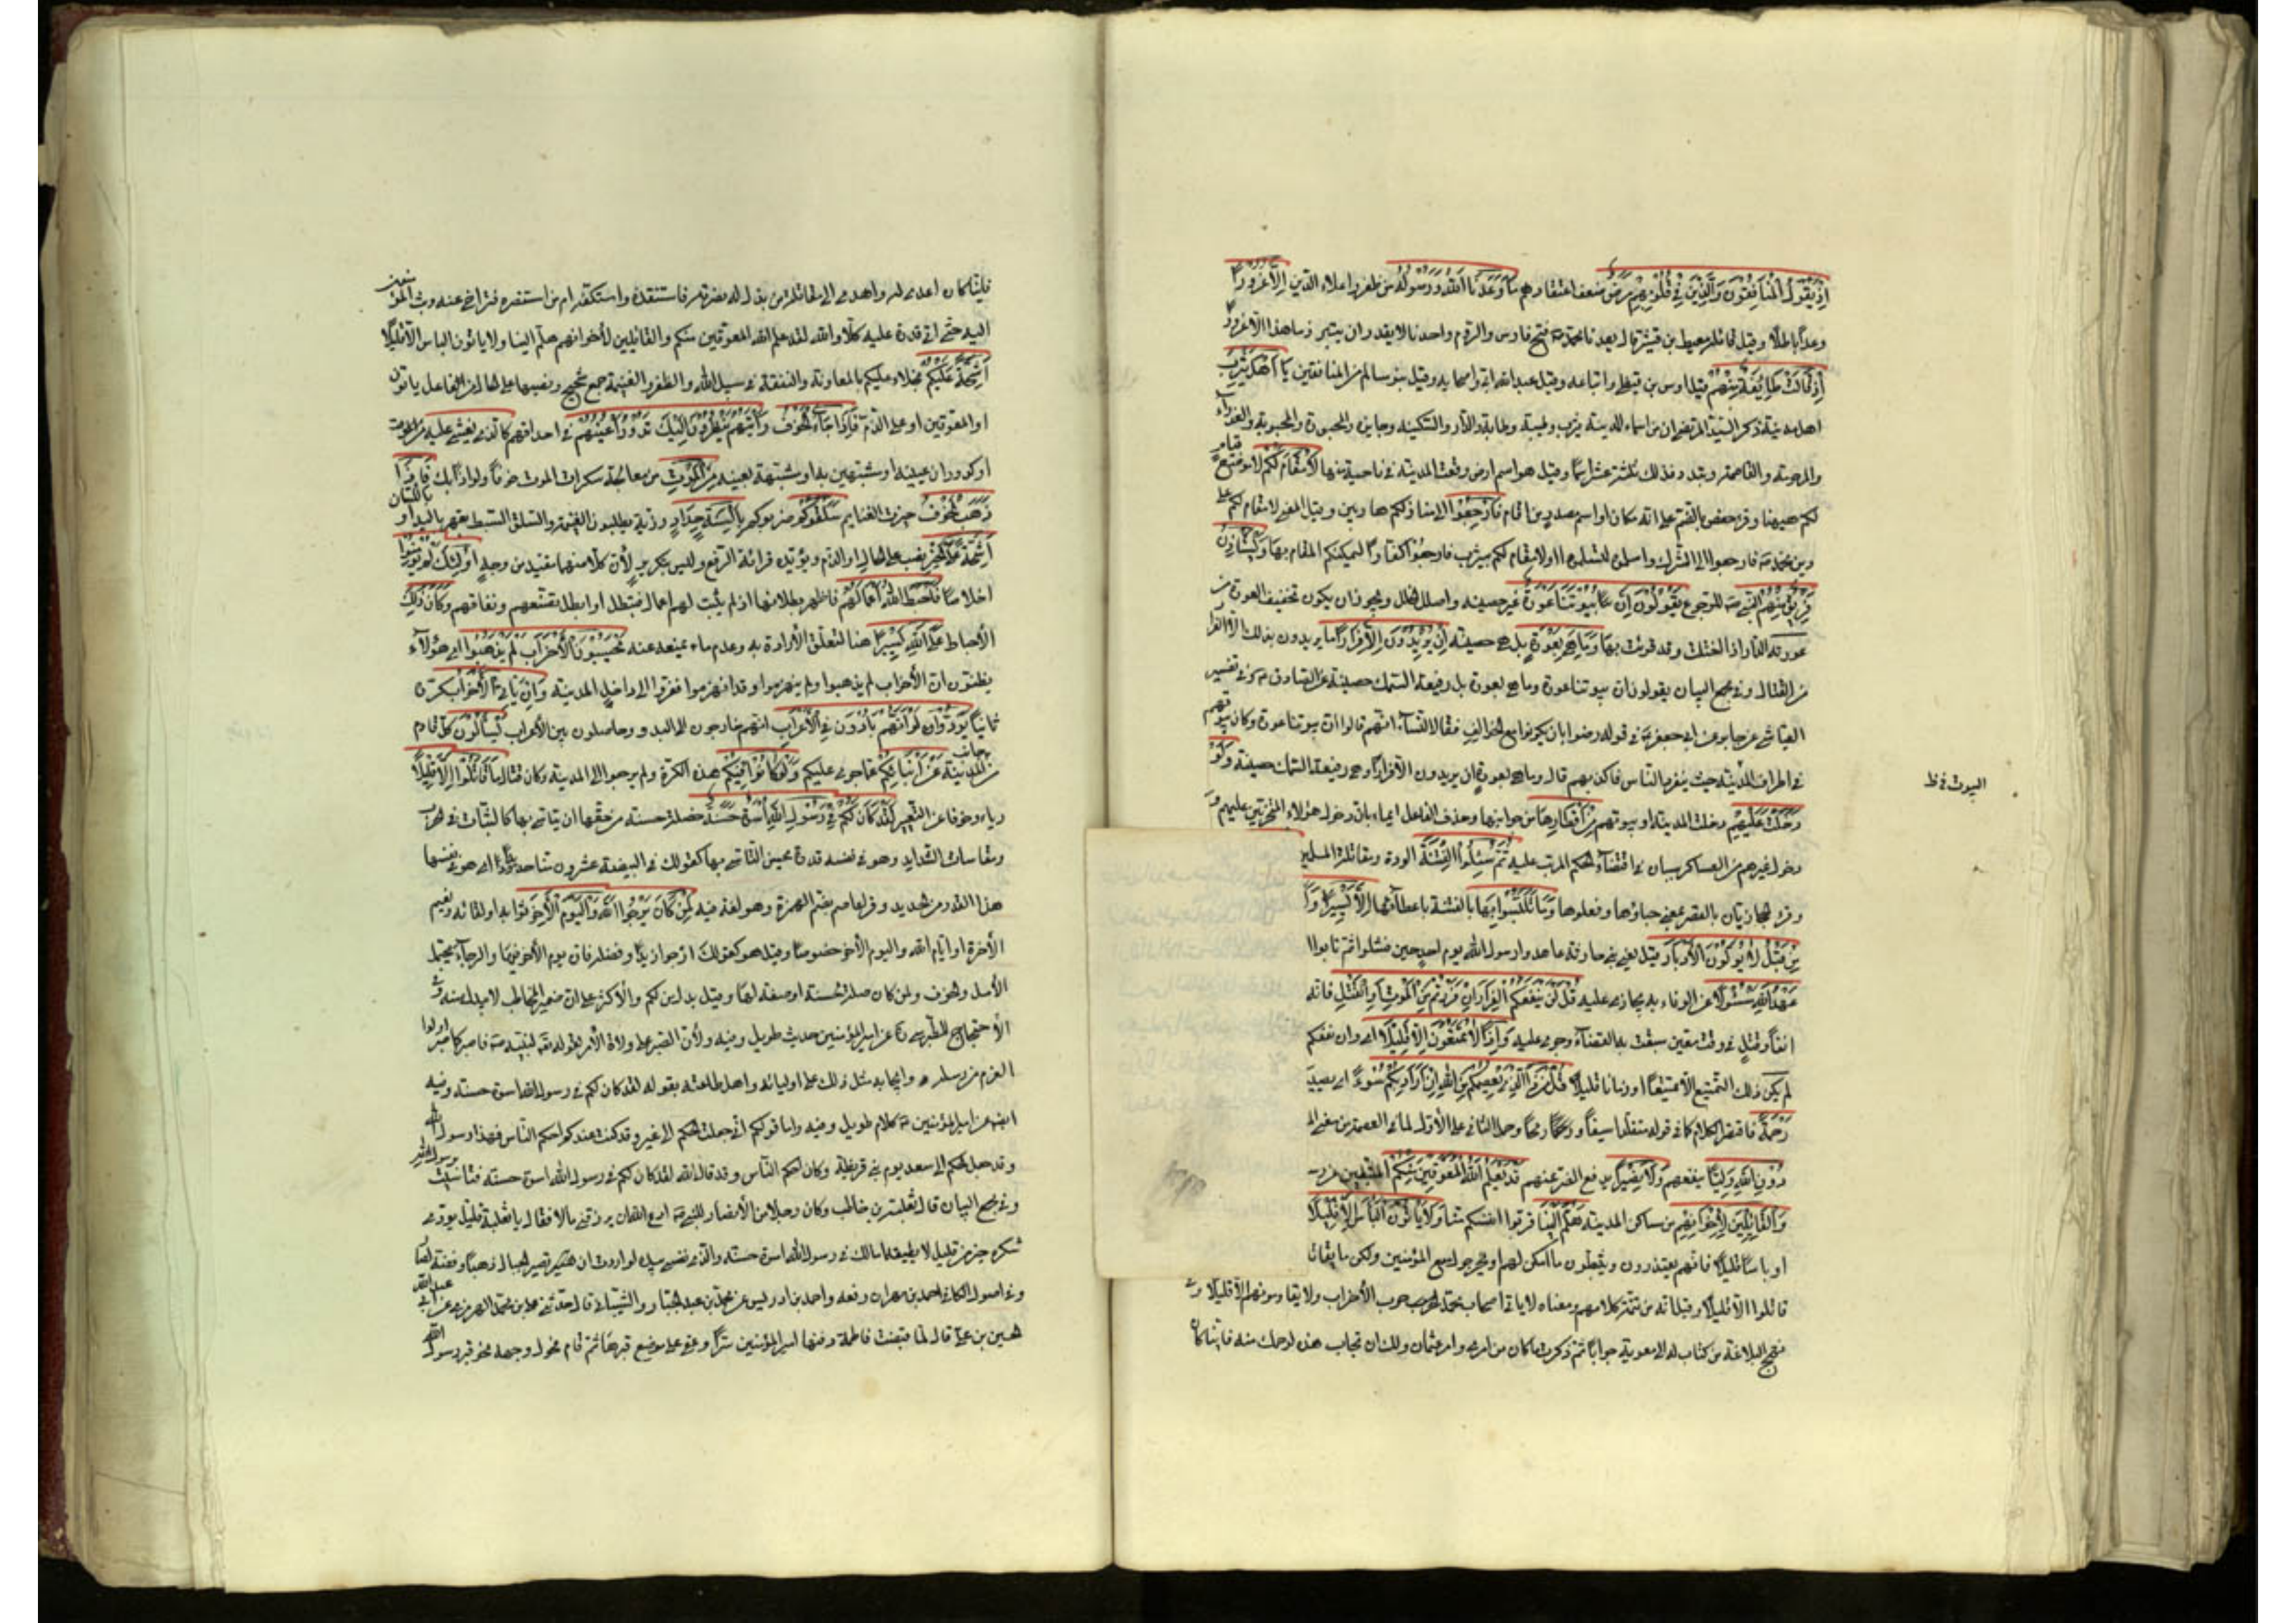 إذ يقول المنافقون والذين في قلوبهم مرض ضعف اعتقاد وهم ما وعدنا الله ورسوله من ظفر واعلاء الدين الا غرورا
وعدا باطلا وقيل قائله معيط بن قشير قال يعدنا محمد ص فتح فارس والروم واحدنا لا يقدر ان يتبرز ما هذا الا غرور
إذ قالت طايفة منهم قيل اوس بن قيظي واتباعه وقيل عبد الله ابي واصحابه وقيل بنو سالم من المنافقين يا أهل يثرب
اهل مدينة ذكر السيد المرتضى ان من اسماء المدينة يثرب وطيبة وطابة والدار والسكينة وجابرة والمحبورة والمحبوبة والعذراء
والمرحومة والقاصمة ويندد فذلك ثلثة عشر اسما وقيل هو اسم ارض وقعت المدينة في ناحية منها لا مقام لكم لا موضع قيام
لكم ههنا وقرء حفص بالضم على انه مكان او اسم مصدر من اقام فارجعوا الى منازلكم هاربين وقيل المعنى لا مقام لكم على
دين محمد ص فارجعوا الى الشرك واسلموه لتسلموا او لا مقام لكم بيثرب فارجعوا كفارا ليمكنكم المقام بها ويستأذن
فريق منهم النبي ص للرجوع يقولون ان بيوتنا عورة غير حصينة واصلها الخلل ويجوز ان يكون تخفيف العورة من
عورت الدار اذا اختلت وقد قرئت بها وما هي بعورة بل هي حصينة ان يريدون الا فرارا ما يريدون بذلك الا الفرار
من القتال وفي مجمع البيان يقولون ان بيوتنا عورة وما هي بعورة بل رفيعة السمك حصينة عن الصادق ع وفي تفسير
العياشي عن جابر عن ابي جعفر ع في قوله رضوا بان يكونوا مع الخوالف فقال النساء انهم قالوا ان بيوتنا عورة وكان بيوتهم
في اطراف المدينة حيث ينفرد الناس فاكذبهم قال وما هي بعورة ان يريدون الا فرارا وهي رفيعة السمك حصينة ولو
البيوت في ظ
دخلت عليهم دخلت المدينة او بيوتهم من أقطارها من جوانبها وحذف الفاعل ايماء بان دخول هؤلاء المتحزبين عليهم و
دخول غيرهم من العساكر سيان في اقتضاء الحكم المرتب عليه ثم سئلوا الفتنة الردة ومقاتلة المسلمين
وقرء الحجازيان بالقصر بمعنى جباؤها وفعلوها وما تلبثوا بها بالفتنة باعطائها الا يسيرا
من قبل لا يولون الأدبار قيل يعني بني حارثة عاهدوا رسول الله يوم احد حين فشلوا ثم تابوا
عهد الله مسئولا عن الوفاء به مجازى عليه قل لن ينفعكم الفرار ان فررتم من الموت او القتل فانه
انفا وقتل في وقت معين سبقت به القضاء وجرى عليه وإذا لا تمتعون الا قليلا اي وان نفعكم
لم يكن ذلك التمتيع الا تمتيعا او زمانا قليلا قل من ذا الذي يعصمكم من الله ان أراد بكم سوءا او يصيبكم
رحمة فاختصر الكلام كما في قوله متقلدا سيفا ورمحا وحمل الثاني على الأول لما في العصمة من معنى المنع
دون الله وليا ينفعهم ولا نصيرا يدفع الضر عنهم قد يعلم الله المعوقين منكم المثبطين عن
والقائلين لإخوانهم من ساكني المدينة هلم الينا قربوا انفسكم منا ولا يأتون البأس الا قليلا
او باسا قليلا فانهم يعتذرون ويتثبطون ما امكن لهم او يخرجون مع المؤمنين ولكن ما يقاتلون
قاتلوا الا قليلا وقيل انه من تتمة كلامهم ومعناه لا ياتي اصحاب محمد حرب الأحزاب ولا يقاومونهم الا قليلا وفي
نهج البلاغة من كتاب له الى معوية جوابا ثم ذكرت ما كان من امري وامر عثمان ولك ان تجاب هذه لرحمك منه فايّنا كان
فايّنا كان اعدى له واهدى الى مقاتله امن بذل له نصرته فاستقعده واستكفه ام من استنصره فتراخى عنه وبث المنون
اليه حتى اتى قدره عليه كلا والله لقد علم الله المعوقين منكم والقائلين لأخوانهم هلم الينا ولا ياتون الباس الا قليلا
أشحة عليكم بخلاء عليكم بالمعاونة والنفقة في سبيل الله والظفر والغنيمة جمع شحيح ونصبها على الحال من الفاعل ياتون
او المعوقين او على الذم فإذا جاء الخوف رأيتهم ينظرون إليك تدور أعينهم في احداقهم كالذي يغشى عليه من الموت
او كدوران عينيه او مشبهين به او مشبهة بعينه من الموت من معالجة سكرات الموت خوفا ولواذا بك فإذا
ذهب الخوف حيزت الغنايم سلقوكم ضربوكم بألسنة حداد ذربة يطلبون الغنيمة والسلق البسط بقهر باليد او باللسان
أشحة على الخير نصب على الحال او الذم ويؤيده قرائة الرفع وليس بتكرير لأن كلا منهما مقيد من وجه أولئك لم يؤمنوا
اخلاصا فأحبط الله أعمالهم فاظهر بطلانها اذ لم يثبت لهم اعمال فتبطل او ابطل تصنعهم ونفاقهم وكان ذلك
الأحباط على الله يسيرا هينا لتعلق الأرادة به وعدم ما يمنعه عنه يحسبون الأحزاب لم يذهبوا اي هؤلاء
يظنون ان الأحزاب لم يذهبوا ولم ينهزموا وقد انهزموا ففروا الى داخل المدينة وإن يأت الأحزاب كرة
ثانيا يودوا لو أنهم بادون في الأعراب انهم خارجون الى البدو وحاصلون بين الأعراب يسألون كل قادم
من جانب المدينة عن أنبائكم عما جرى عليكم ولو كانوا فيكم هذه الكرة ولم يرجعوا الى المدينة وكان قتال ما قاتلوا الا قليلا
رياء وخوفا عن التعيير لقد كان لكم في رسول الله أسوة حسنة خصلة حسنة من حقها ان يتاسى بها كالثبات في الحرب
ومقاسات الشدايد وهو في نفسه قدوة يحسن التاسي بها كقولك في البيضة عشرون منا حديدا اي هي في نفسها
هذا القدر من الحديد وقرء عاصم بضم الهمزة وهو لغة فيه لمن كان يرجوا الله واليوم الآخر ثواب الله او لقائه ونعيم
الآخرة او ايام الله واليوم الآخر خصوصا وقيل هو كقولك ارجو زيدا وفضله فان يوم الآخر فيها والرجاء يحتمل
الأمل والخوف ولمن كان صلة لحسنة او صفة لها وقيل بدل من لكم والأكثر على ان ضمير المخاطب لا يبدل منه وفي
الأحتجاج للطبرسي ره عن امير المؤمنين حديث طويل وفيه ولأن الصبر على ولاة الأمر لقوله تع لنبيه ص فاصبر كما صبر اولوا
العزم من الرسل وايجابه مثل ذلك على اوليائه واهل طاعته بقوله لقد كان لكم في رسول الله اسوة حسنة وفيه
ايضا عن امير المؤمنين ع كلام طويل وفيه واما قولكم اني جعلت الحكم الى غيري وقد كنت عندكم احكم الناس فهذا رسول الله
وقد جعل الحكم الى سعد يوم بني قريظة وكان احكم الناس وقد قال الله لقد كان لكم في رسول الله اسوة حسنة فتاسيت برسول الله
وفي مجمع البيان قال ثعلبة بن حاطب وكان رجلا من الأنصار للنبي ص ادع الله ان يرزقني مالا فقال يا ثعلبة قليل تؤدي
شكره خير من كثير لا تطيقه اما لك في رسول الله اسوة حسنة والذي نفسي بيده لو اردت ان تسير الجبال ذهبا وفضة لسارت
وفي اصول الكافي احمد بن مهران رفعه واحمد بن ادريس عن محمد بن عبد الجبار الشيباني قال حدثني علي بن محمد الهرمزاني عن ابي عبد الله
الحسين بن علي قال لما قبضت فاطمة دفنها امير المؤمنين سرا وعفى على موضع قبرها ثم قام فحول وجهه نحو قبر رسول الله